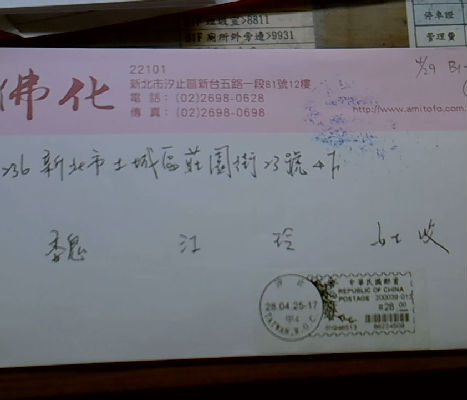 >6811
B1F 廁所外旁邊>9931
停車證
管理費
佛化
22101
新北市汐止區新台五路一段81號12樓
電話：(02)2698-0628
傳真：(02)2698-0698
4/29 B1-
http://www.amitofo.com
236 新北市土城區莊園街23號4F
魏 江 玲 女士 收
28.04.25-17
TAIWAN R.O.C.
中華民國郵資
REPUBLIC OF CHINA
POSTAGE 200039 013